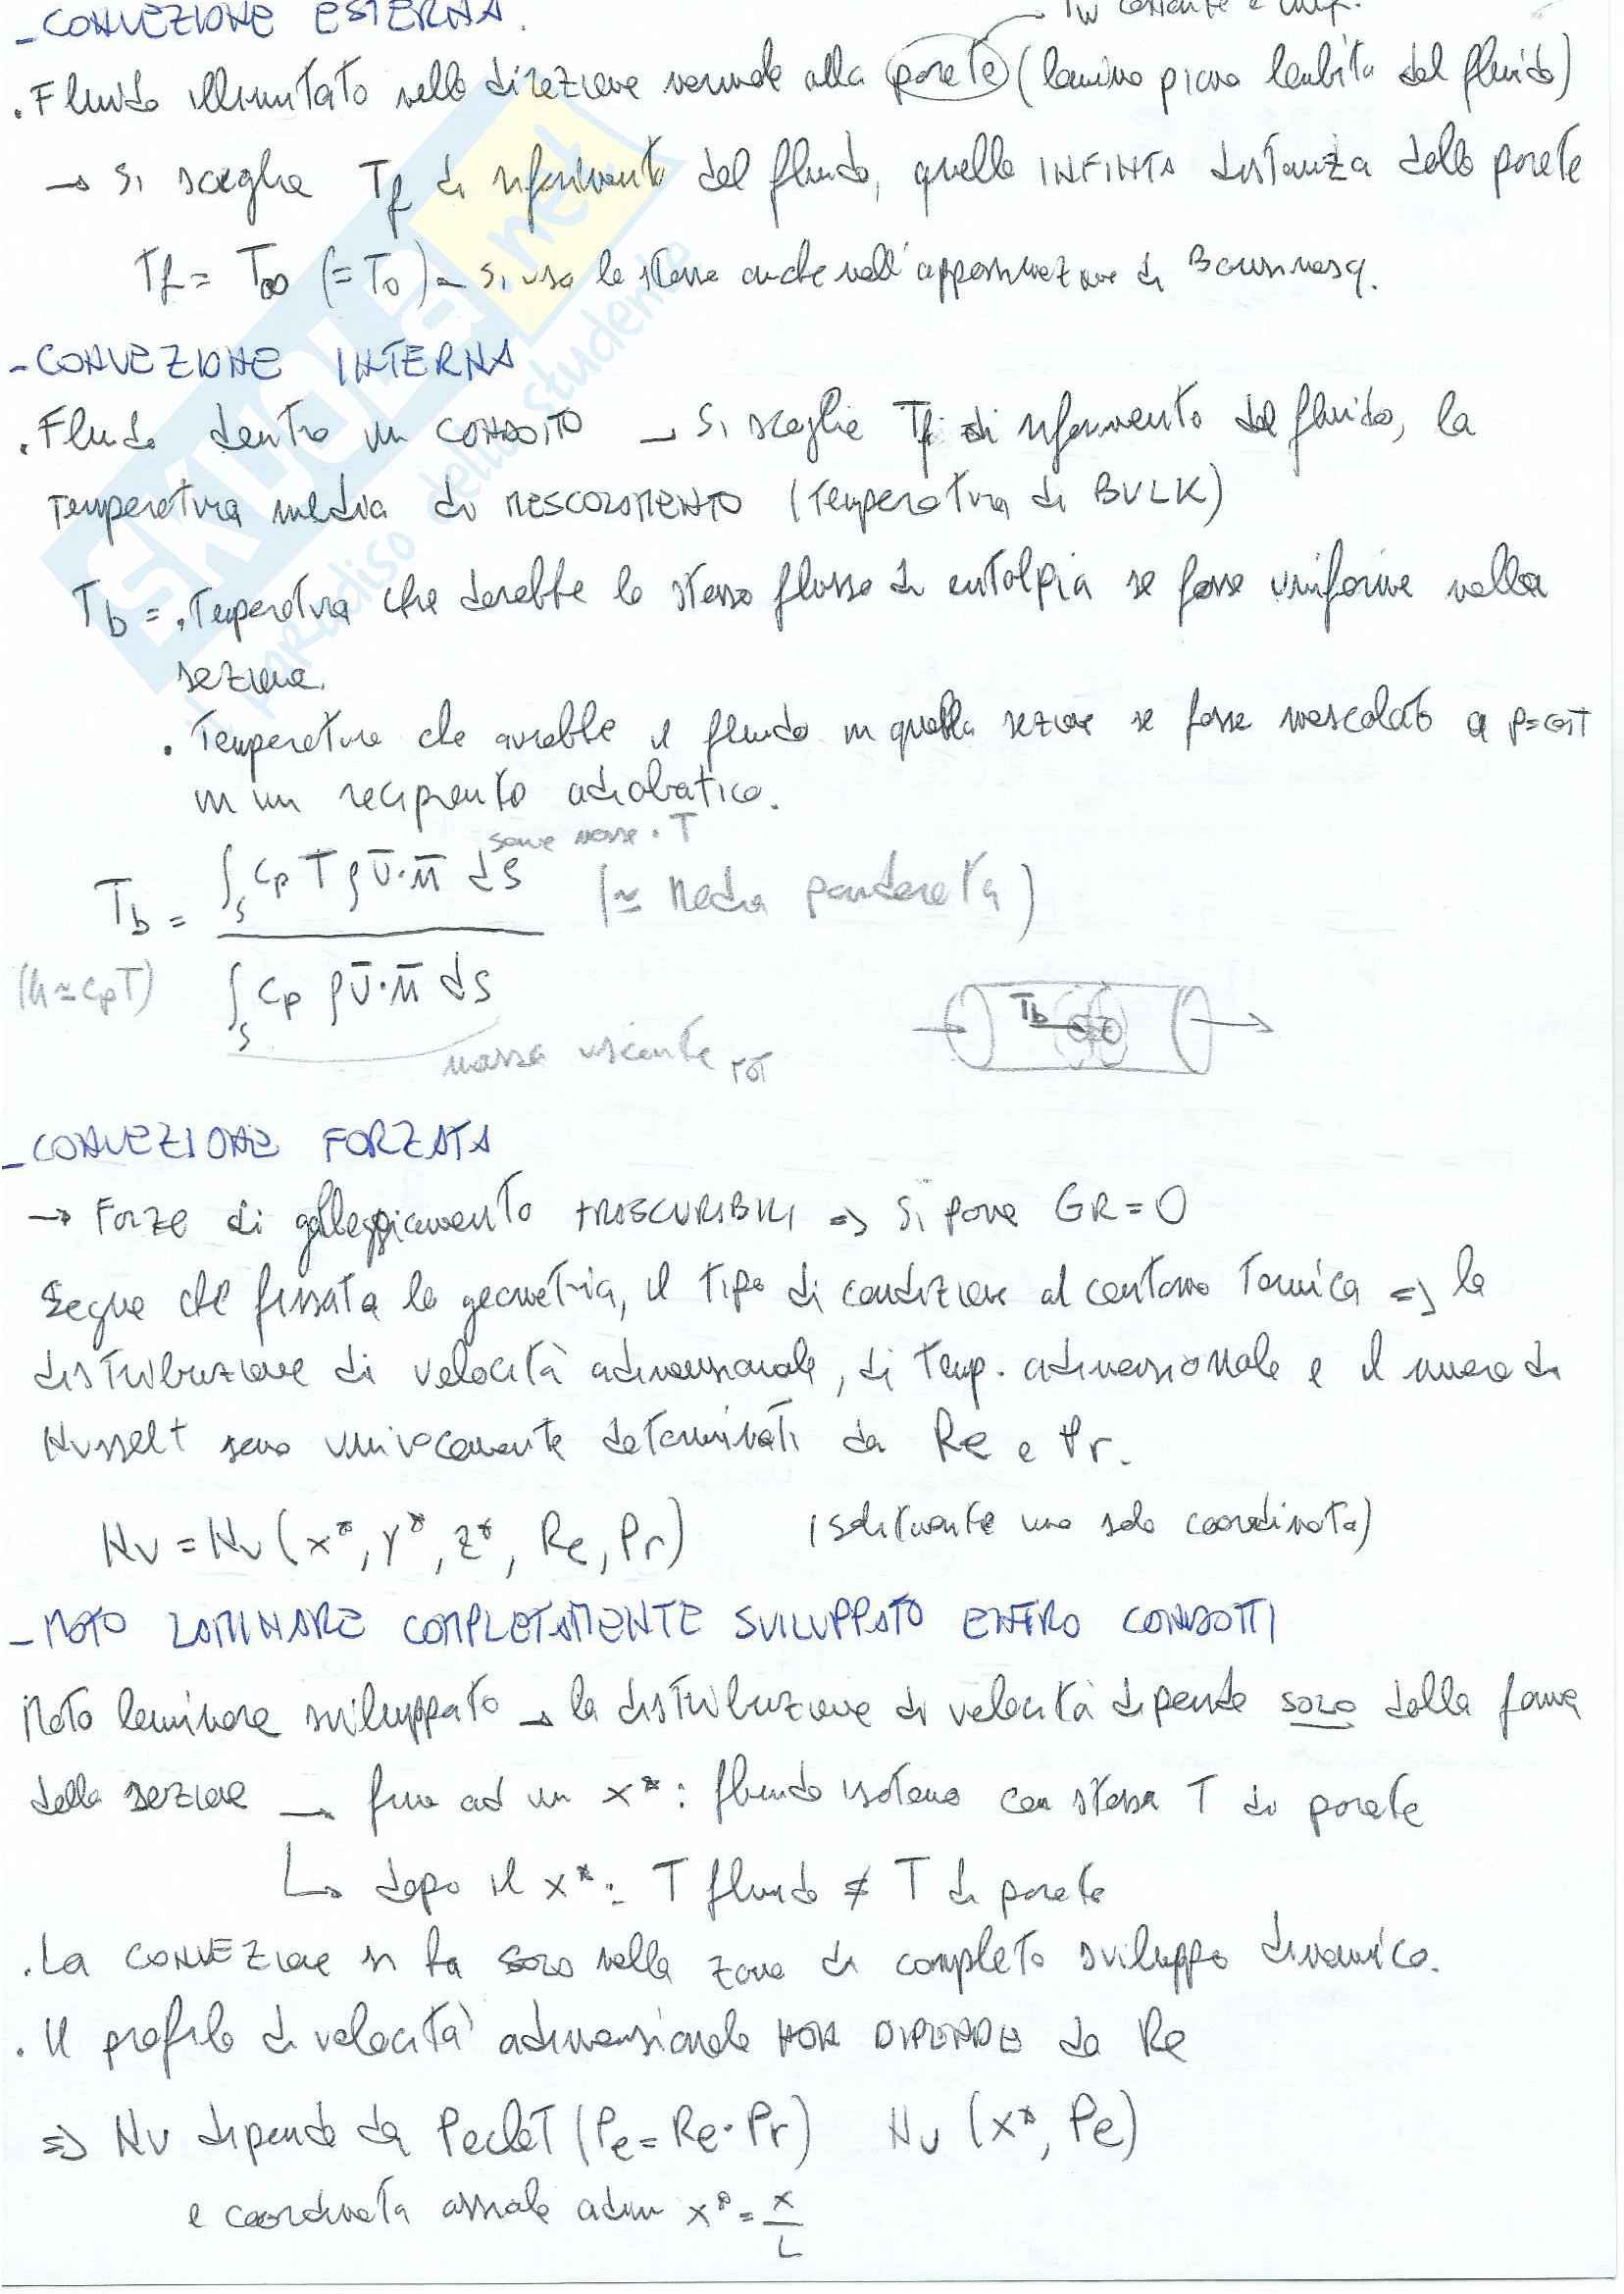 - CONVEZIONE ESTERNA.
Tw costante e unif.
. Fluido illimitato nella direzione normale alla parete (lamina piana lambita dal fluido)
→ Si sceglie Tf di riferimento del fluido, quella INFINITA distanza dalla parete
Tf = T∞ (= T0) → si usa la stessa anche nell'approssimazione di Boussinesq.
- CONVEZIONE INTERNA
. Fluido dentro un CONDOTTO → Si sceglie Tf di riferimento del fluido, la
Temperatura media di MESCOLAMENTO (Temperatura di BULK)
Tb = . Temperatura che darebbe lo stesso flusso di entalpia se fosse uniforme nella
sezione.
. Temperatura che avrebbe il fluido in quella sezione se fosse mescolato a p=cost
in un recipiente adiabatico.
some masse · T
Tb = ∫s cp T ρ v̄·n̄ dS / ∫s cp ρ v̄·n̄ dS (≃ Media ponderata)
(h≃cpT)
massa uscente TOT
Tb
- CONVEZIONE FORZATA
→ Forze di galleggiamento TRASCURABILI => Si pone GR=0
Segue che fissata la geometria, il tipo di condizione al contorno Termica => la
distribuzione di velocità adimensionale, di Temp. adimensionale e il numero di
Nusselt sono univocamente determinati da Re e Pr.
Nu = Nu (x*, y*, z*, Re, Pr) (solitamente una sola coordinata)
- MOTO LAMINARE COMPLETAMENTE SVILUPPATO ENTRO CONDOTTI
Moto laminare sviluppato → la distribuzione di velocità dipende SOLO dalla forma
della sezione → fino ad un x*: fluido isotermo con stessa T di parete
↳ dopo il x*: T fluido ≠ T di parete
. La CONVEZIONE si ha SOLO nella zona di completo sviluppo dinamico.
. Il profilo di velocità adimensionale NON DIPENDE da Re
=> Nu dipende da Peclet (Pe = Re·Pr) Nu (x*, Pe)
e coordinata assiale adim x* = x/L
SKUOLA.net
il paradiso dello studente